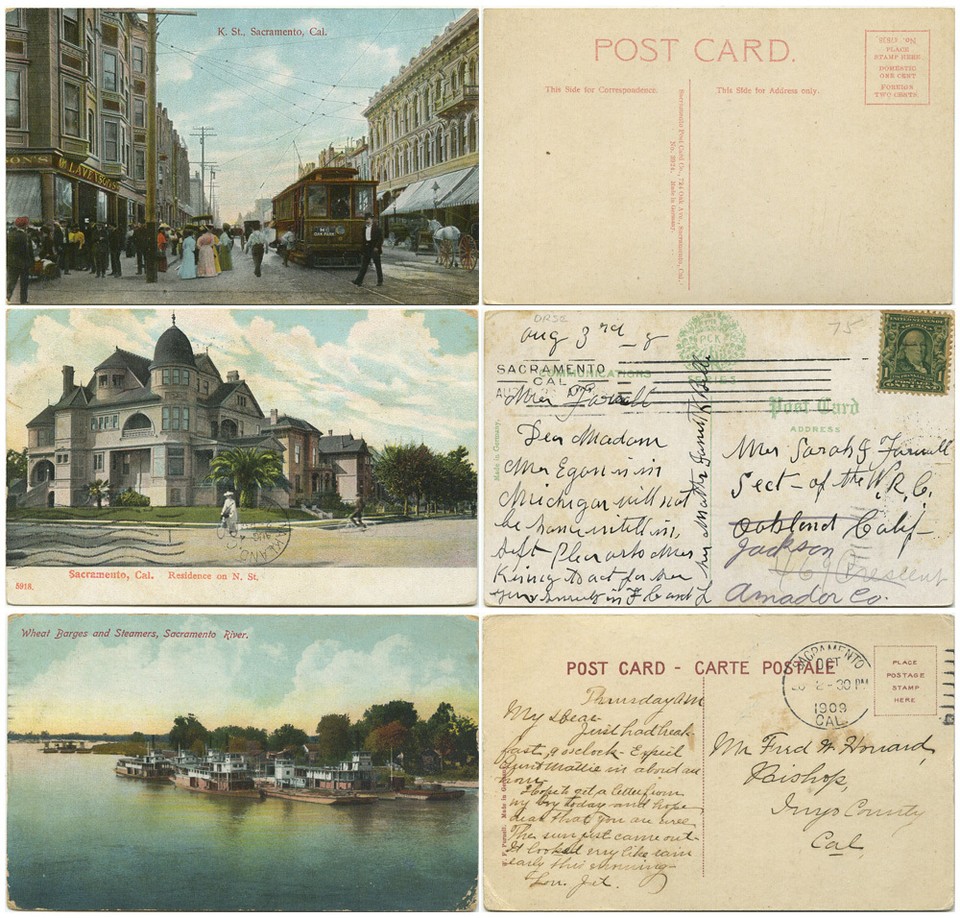 K. St., Sacramento, Cal.
LAVENSON'S
OAK PARK
POST CARD.
This Side for Correspondence.
This Side for Address only.
PLACE
STAMP HERE
DOMESTIC
ONE CENT
FOREIGN
TWO CENTS.
Sacramento Post Card Co., Oak Ave., Sacramento, Cal.
Made in Germany.
Sacramento, Cal. Residence on N. St.
5918.
Aug 3rd 8
SACRAMENTO
CAL
COMMUNICATIONS
Post Card
ADDRESS
Made in Germany.
Dear Madam
Mrs Egan is in
Michigan will not
be home untill in
Sept
to act for her
in F C and L
Mrs Sarah J Farwell
Sect - of the W.R.C.
Oakland Calif
Jackson
Crescent
Amador Co.
75
Wheat Barges and Steamers, Sacramento River.
POST CARD - CARTE POSTALE
SACRAMENTO
OCT
2-30 PM
1909
CAL.
PLACE
POSTAGE
STAMP
HERE
Thursday AM
My Dear
Just had break
fast, 9 o'clock - Expect
Aunt Mattie in about an
hour.
Hope to get a letter from
my boy today and hope
hear that you are
The sun just came out -
It looked very like rain
early this morning -
Mr Fred W. Howard,
Bishop,
Inyo County
Cal.